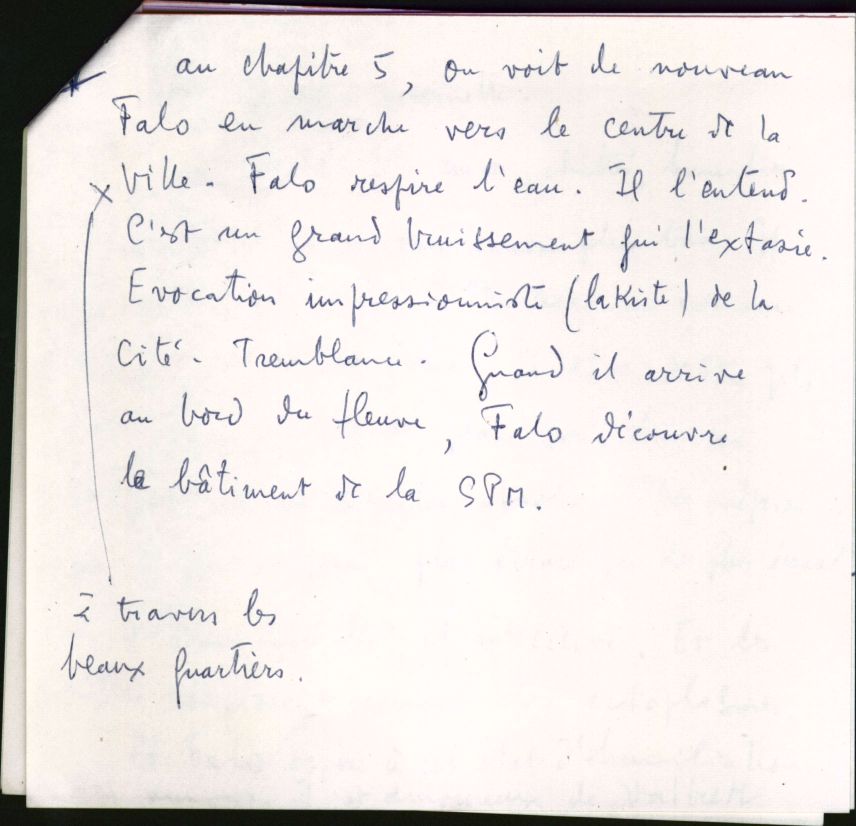 au chapitre 5, on voit de nouveau
Falo en marche vers le centre de la
ville. Falo respire l'eau. Il l'entend.
C'est un grand bruissement qui l'extasie.
Evocation impressionniste (lakiste) de la
Cité. Tremblance. Quand il arrive
au bord du fleuve, Falo découvre
le bâtiment de la SPM.
à travers les
beaux quartiers.